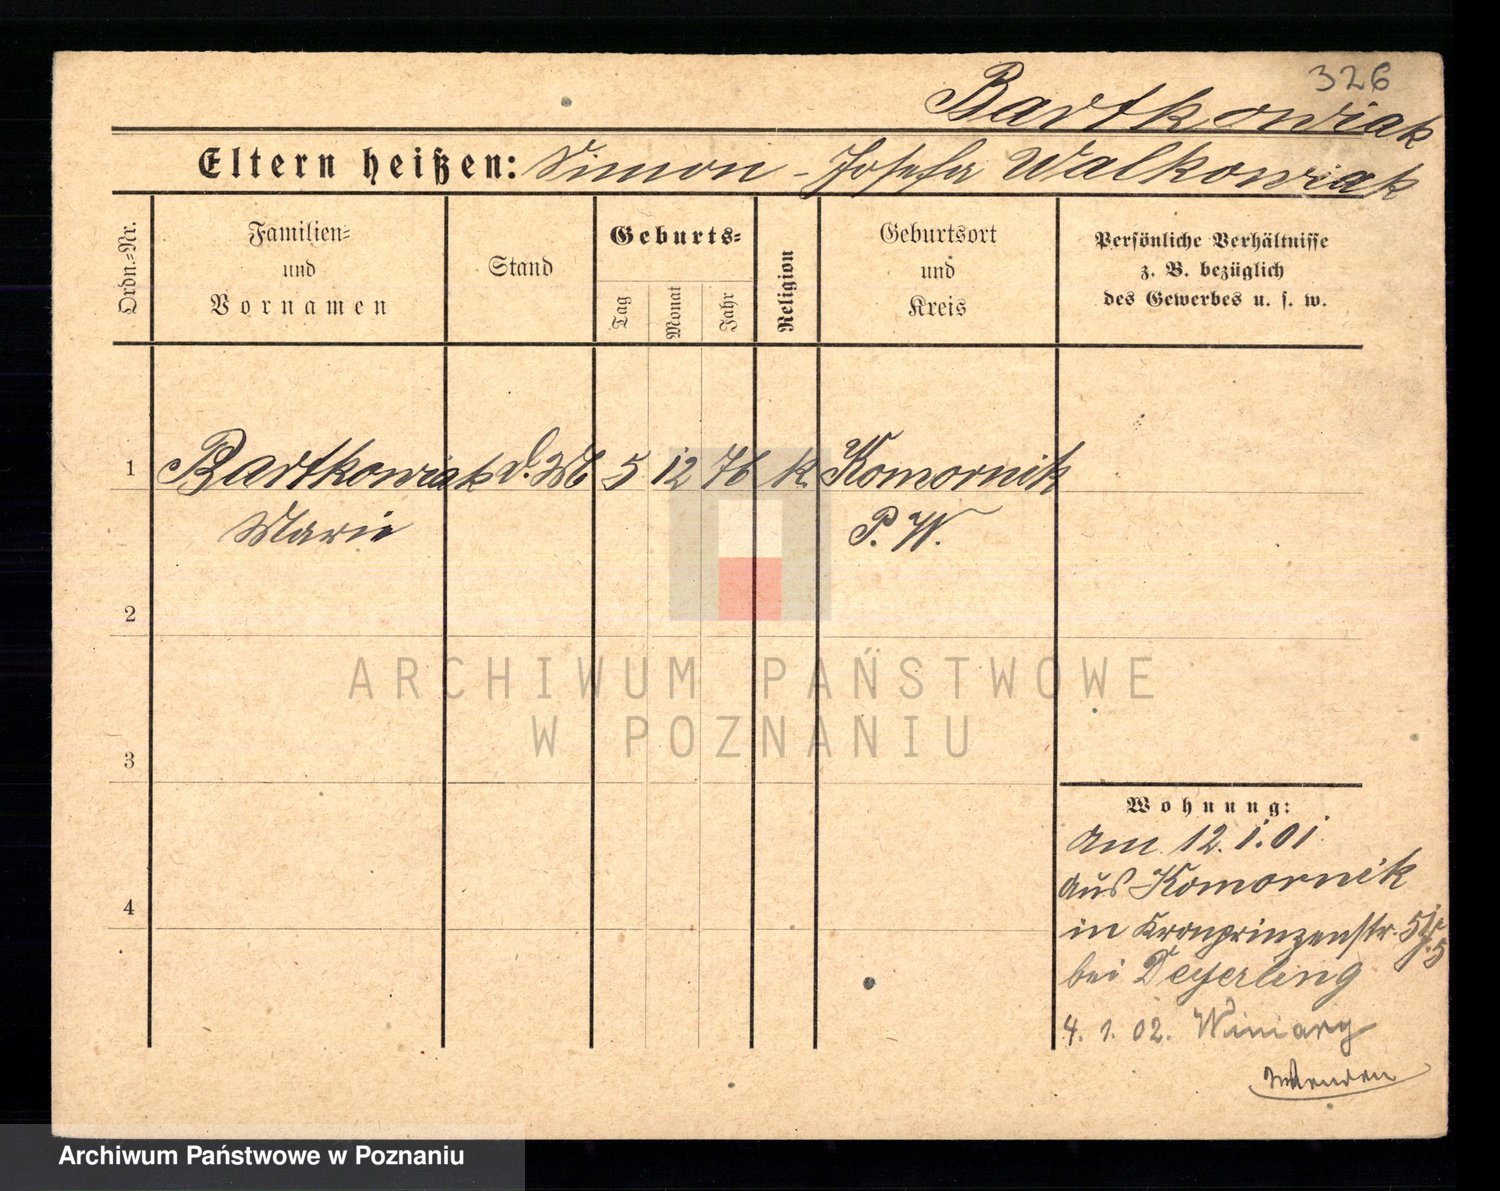 326
Bartkowiak
Eltern heißen: Simon - Josefa Walkowiak
Ordn.-Nr.
Familien-
und
Vornamen
Stand
Geburts-
Tag
Monat
Jahr
Religion
Geburtsort
und
Kreis
Persönliche Verhältnisse
z. B. bezüglich
des Gewerbes u. s. w.
1 Bartkowiak d. M 5 12 76 k. Komornik
Marie P. W.
2
3
4
Wohnung:
am 12.1.01
aus Komornik
in Kronprinzenstr.
bei Deyerling
4. 1. 02. Winiary
ARCHIWUM PAŃSTWOWE
W POZNANIU
Archiwum Państwowe w Poznaniu